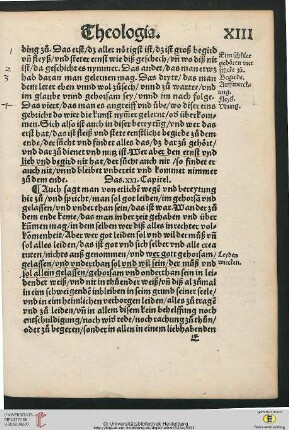 Theologia. XIII
ding zů. Das erst/dz aller nötigst ist/dz ist groß begird
vñ fleyß/vnd steter ernst wie diß geschech/vñ wo diß nit
ist/da geschicht es nymmer. Das ander/das man etwz
hab daran man gelernen mag. Das drytt/das man
dem lerer eben vnnd wol zůsech/vnnd zů wartte/vnd
im glaube vnnd gehorsam sey/vnnd im nach folge.
Das viert/das man es angreiff vnd übe/wo diser eyns
gebricht do wirt die kunst nymmer gelernt/ob überkom-
men. Sich also ist auch in diser bereyttũg/vnd wer das
erst hat/das ist fleiß vnd stete ernstliche begirde zů dem
ende/der sůcht vnd findet alles das/dz dar zů gehört/
vnd das zů dienet vnd nütz ist. Wer aber den ernst vnd
lieb vnd begird nit hat/der sůcht auch nit/so findet er
auch nit/vnd bleibet vnbereit vnd kommet nimmer
zů dem ende.
Das. XXI. Capitel.
Auch sagt man von etliche wege vnd bereytung
hie zů/vnd spricht/man sol got leiden/im gehorsã vnd
gelassen/vnd vnderthan sein/das ist war. Wan der zů
dem ende keme/das man in der zeit gehaben vnd über
kũmen mag/in dem selben wer diß alles in rechter vol-
kõmenheit. Aber wer got leiden sol vnd will der můß vñ
sol alles leiden/das ist got vnd sich selber vnd alle crea
turen/nichts auß genommen/vnd wer gott gehorsam/
gelassen/vnd vnderthan sol vnd wil sein/der můß vnd
sol allein gelassen/gehorsam vnd onderthan sein in lei-
dender weiß/vnd nit in thůender weiß/vñ diß al zůmal
in eim schweigende inbleiben in seim grund seiner seele/
vnd in ein heimlichen verborgen leiden/alles zů trage
vnd zů leiden/vñ in allen disem kein behelffung noch
entschuldigung/noch wid rede/noch rachung zů thůn/
oder zů begeren/sonder in allen in einem liebhabenden
1
2
3
4
Eim schůler
gehören vier
stück zů.
Begirde.
Leyden
Wircken.
UNIVERSITÄTS-
BIBLIOTHEK
HEIDELBERG
© Universitätsbibliothek Heidelberg